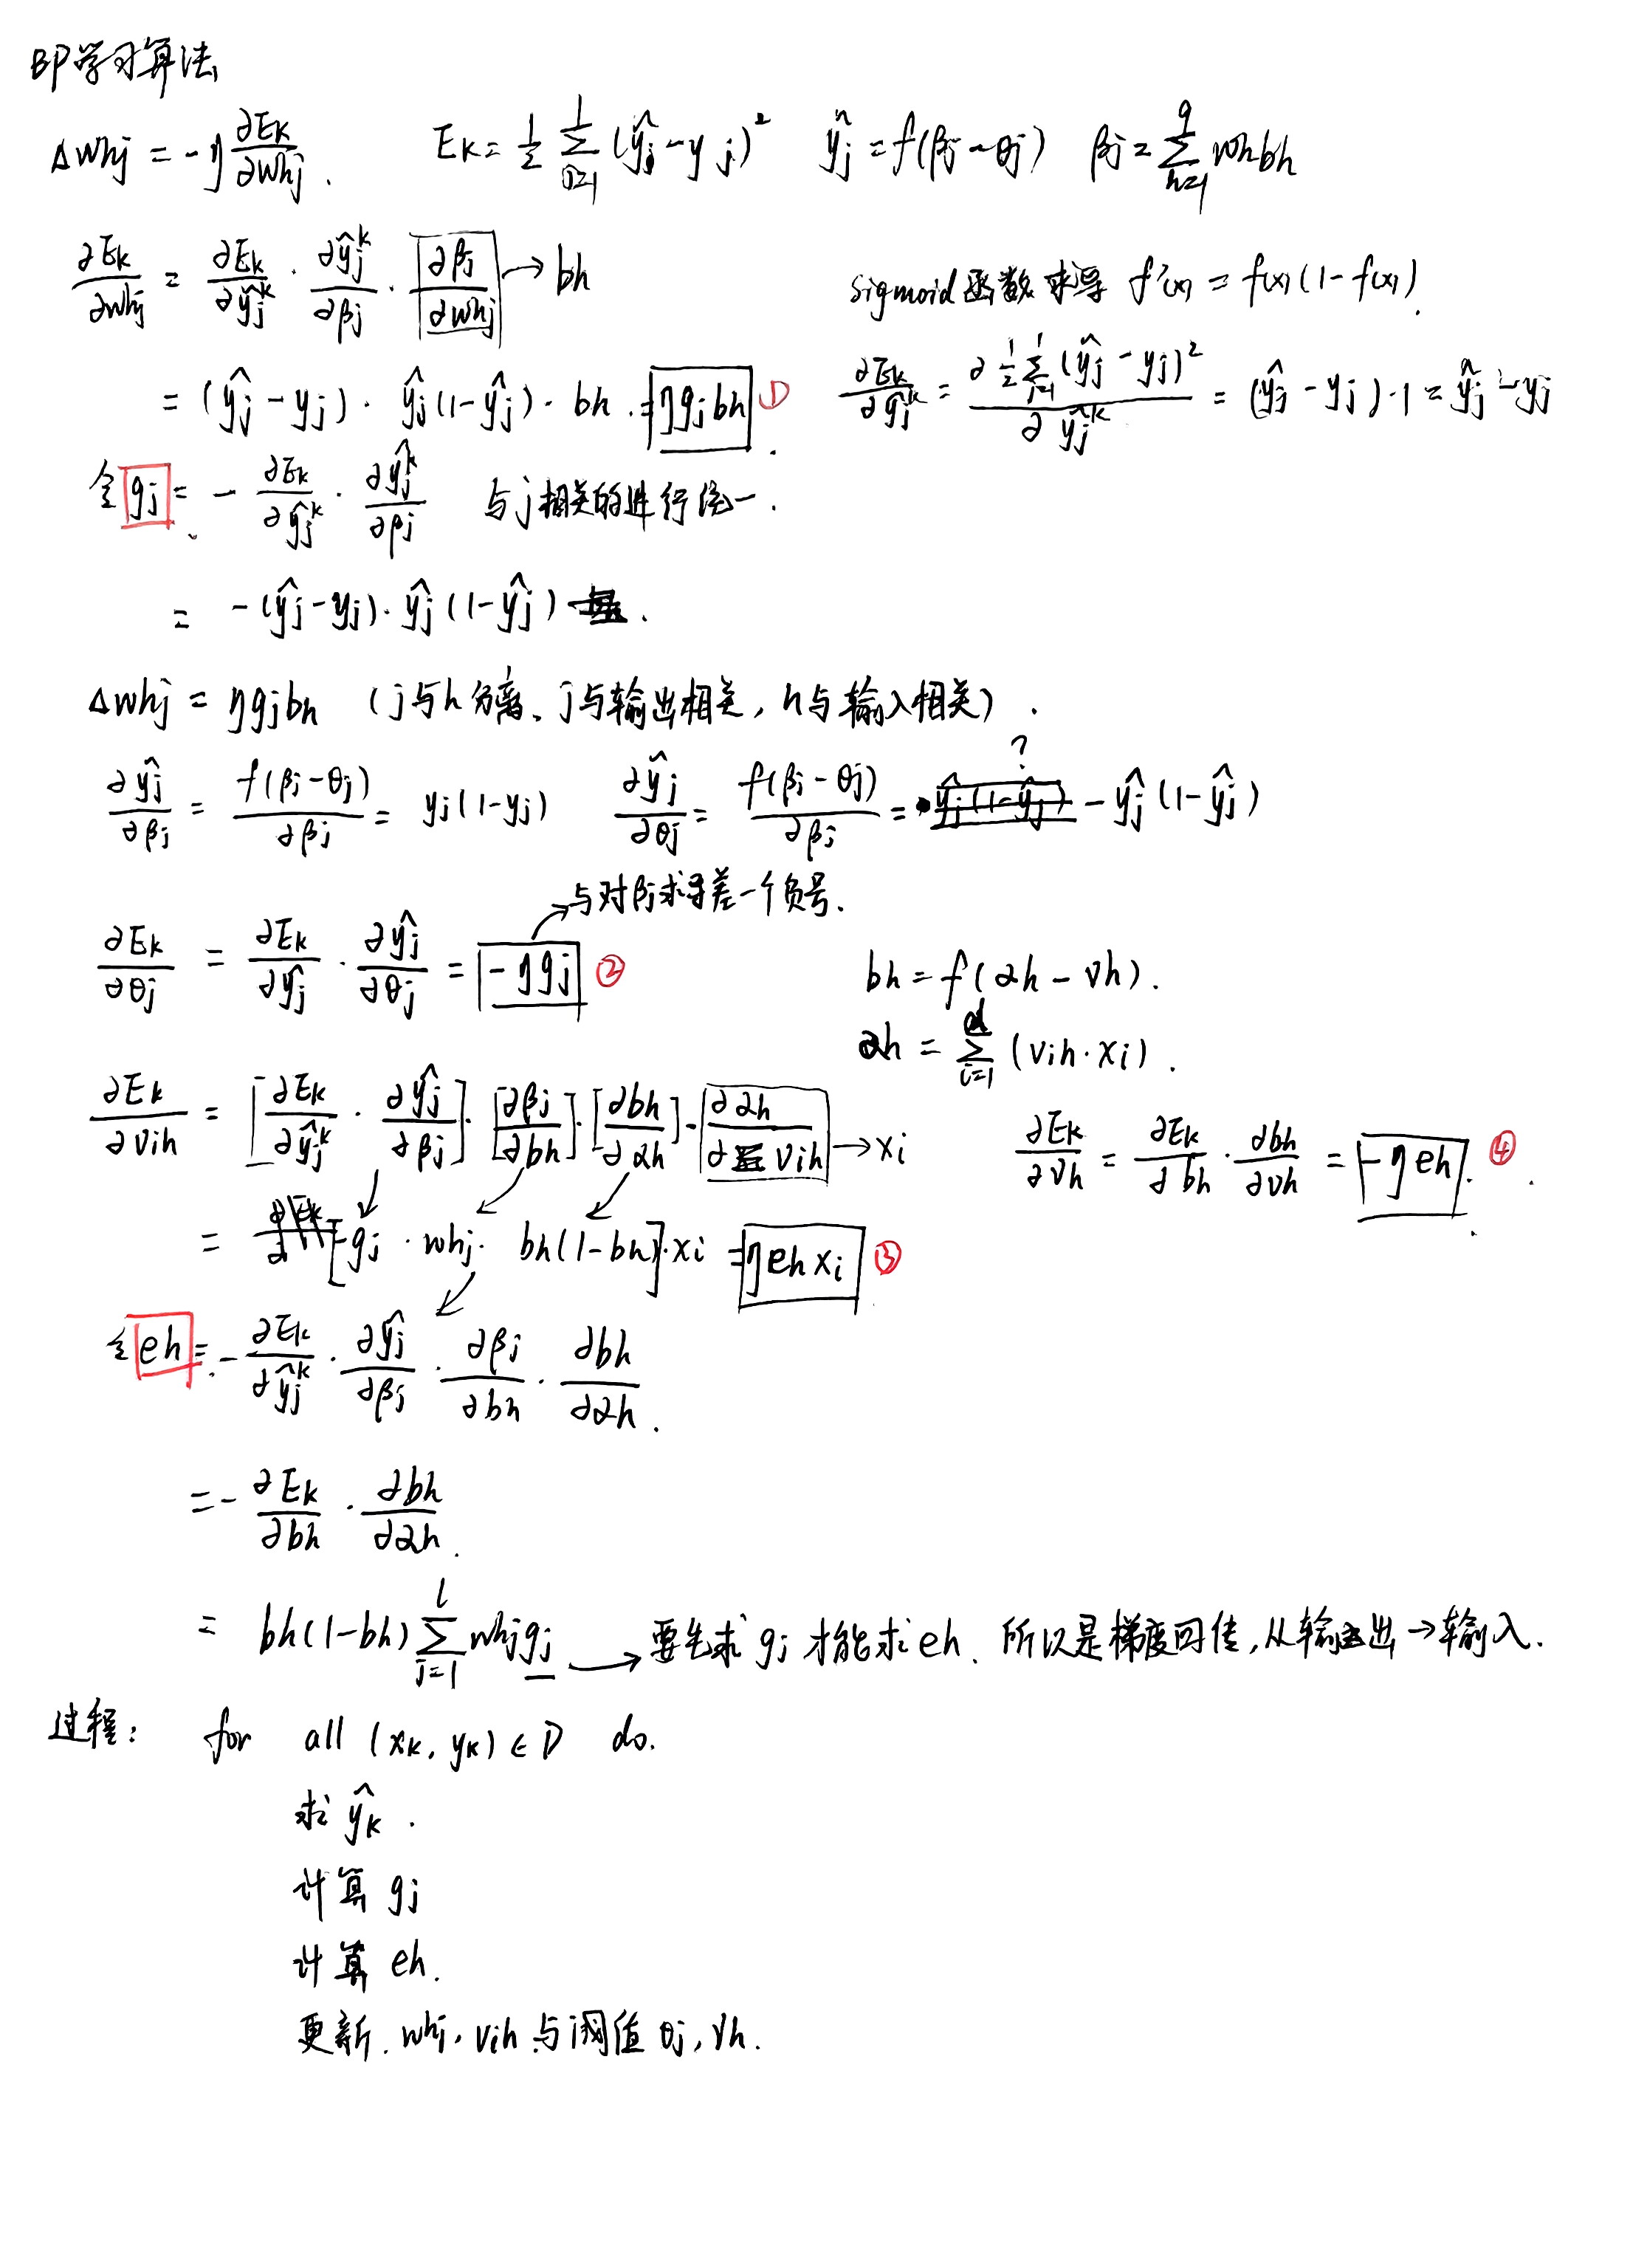 BP学习算法
Δwhj = -η ∂Ek/∂whj . Ek = 1/2 Σ_{j=1}^{l} (ŷj - yj)² ŷj = f(βj - θj) βj = Σ_{h=1}^{q} whbh
∂Ek/∂whj = ∂Ek/∂ŷj^k · ∂ŷj^k/∂βj · ∂βj/∂whj → bh
sigmoid函数求导 f'(x) = f(x)(1-f(x)).
= (ŷj - yj) · ŷj(1-ŷj) · bh . = ηgjbh ①
∂Ek/∂ŷj^k = ∂ 1/2 Σ_{j=1}^{l} (ŷj - yj)² / ∂ŷj^k = (ŷj - yj)·1 = ŷj - yj
令 gj = - ∂Ek/∂ŷj^k · ∂ŷj^k/∂βj 与j相关的进行统一.
= -(ŷj-yj)· ŷj(1-ŷj) .
Δwhj = ηgjbh (j与h分离、j与输出相关, h与输入相关) .
∂ŷj/∂βj = f(βj-θj)/∂βj = yj(1-yj) ∂ŷj/∂θj = f(βj-θj)/∂βj = ŷj(1-ŷj) ? - ŷj(1-ŷj)
→ 与对βj求导差一个负号.
∂Ek/∂θj = ∂Ek/∂ŷj · ∂ŷj/∂θj = -ηgj ②
bh = f(αh - γh).
αh = Σ_{i=1}^{d} (vih·xi) .
∂Ek/∂vih = [∂Ek/∂ŷj^k · ∂ŷj/∂βj]·[∂βj/∂bh]·[∂bh/∂αh]·∂αh/∂vih → xi
∂Ek/∂γh = ∂Ek/∂bh · ∂bh/∂γh = -ηeh . ④
= [-gj · whj· bh(1-bh)]·xi = ηehxi ③
令 eh = - ∂Ek/∂ŷj^k · ∂ŷj/∂βj · ∂βj/∂bh · ∂bh/∂αh .
= - ∂Ek/∂bh · ∂bh/∂αh .
= bh(1-bh) Σ_{j=1}^{l} whjgj → 要先求 gj 才能求eh. 所以是梯度回传,从输出→输入.
过程: for all (xk, yk) ∈ D do.
求 ŷk .
计算 gj
计算 eh.
更新. whj, vih 与阈值 θj, γh.